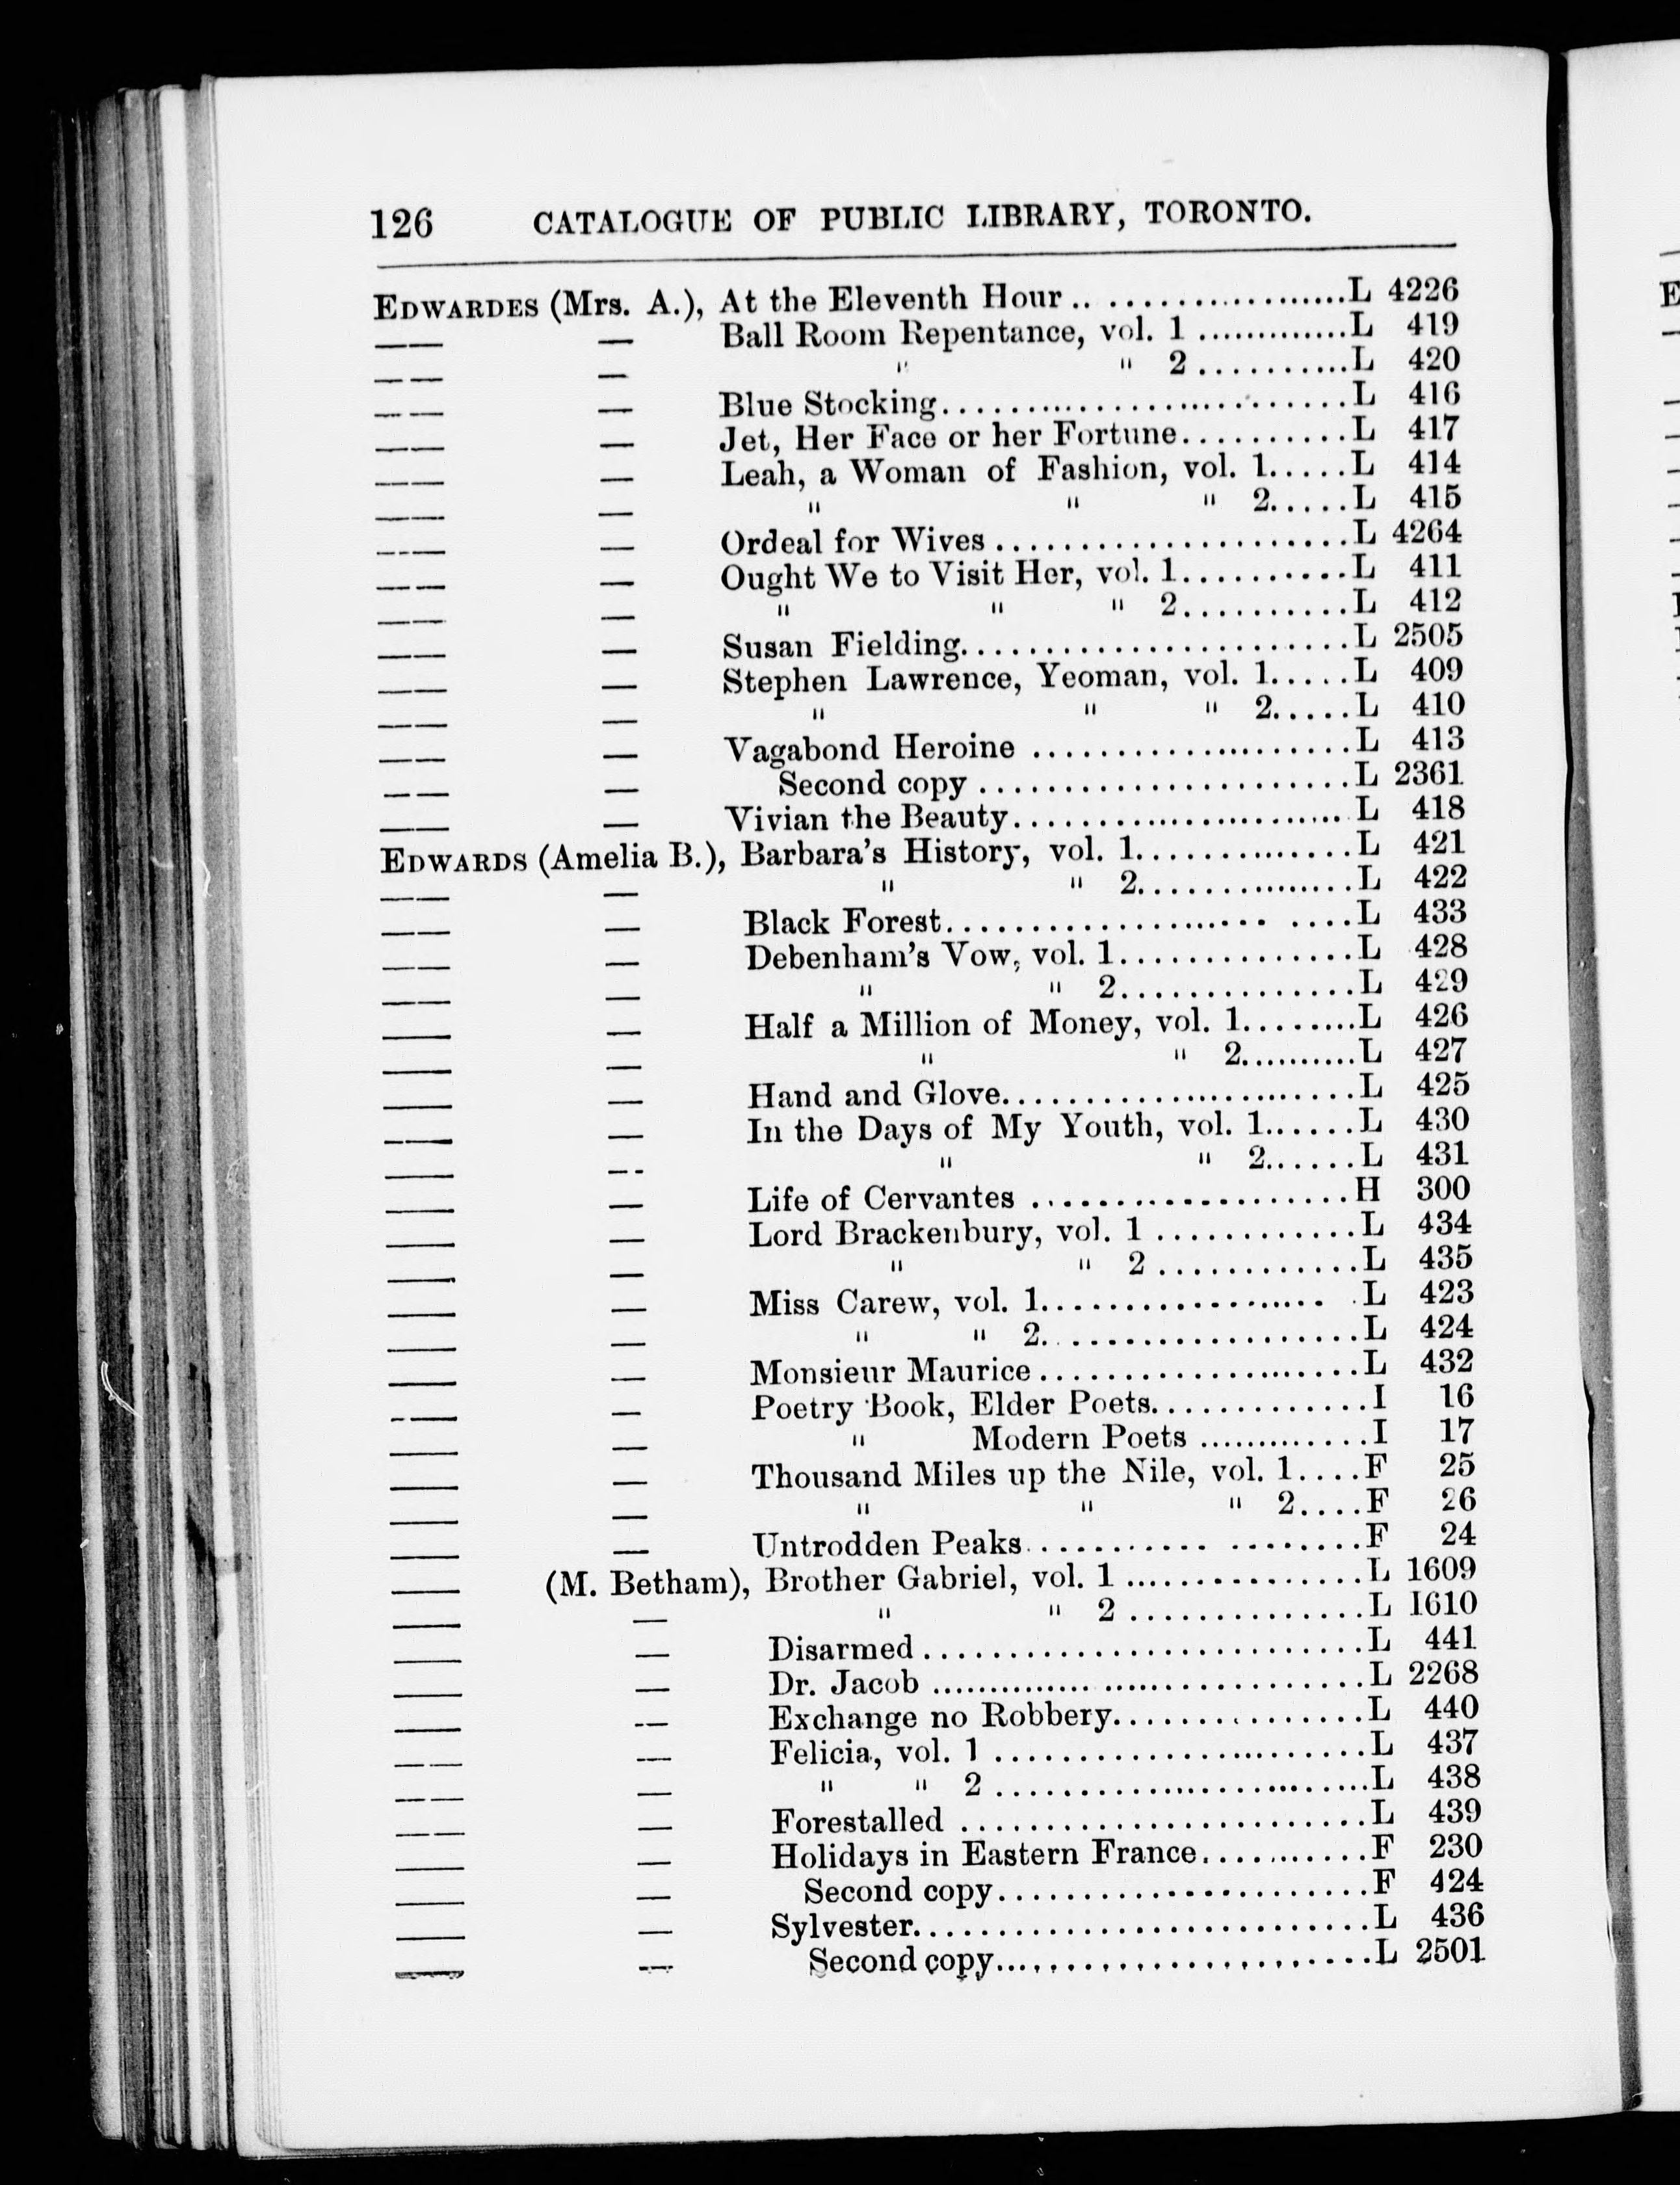 126 CATALOGUE OF PUBLIC LIBRARY, TORONTO.
EDWARDES (Mrs. A.), At the Eleventh Hour .. .................L 4226
—— — Ball Room Repentance, vol. 1 .............L 419
—— — " " 2 ...........L 420
—— — Blue Stocking........................L 416
—— — Jet, Her Face or her Fortune..........L 417
—— — Leah, a Woman of Fashion, vol. 1.....L 414
—— — " " " 2.....L 415
—— — Ordeal for Wives .....................L 4264
—— — Ought We to Visit Her, vol. 1..........L 411
—— — " " " 2..........L 412
—— — Susan Fielding.......................L 2505
—— — Stephen Lawrence, Yeoman, vol. 1.....L 409
—— — " " " 2.....L 410
—— — Vagabond Heroine ...................L 413
—— — Second copy ......................L 2361
—— — Vivian the Beauty.......................L 418
EDWARDS (Amelia B.), Barbara's History, vol. 1..............L 421
—— — " " 2..............L 422
—— — Black Forest................... ....L 433
—— — Debenham's Vow, vol. 1..............L 428
—— — " " 2..............L 429
—— — Half a Million of Money, vol. 1........L 426
—— — " " 2..........L 427
—— — Hand and Glove......................L 425
—— — In the Days of My Youth, vol. 1......L 430
—— — " " 2......L 431
—— — Life of Cervantes ...................H 300
—— — Lord Brackenbury, vol. 1 ............L 434
—— — " " 2 ............L 435
—— — Miss Carew, vol. 1................... .L 423
—— — " " 2...................L 424
—— — Monsieur Maurice....................L 432
—— — Poetry Book, Elder Poets.............I 16
—— — " Modern Poets .............I 17
—— — Thousand Miles up the Nile, vol. 1....F 25
—— — " " " 2....F 26
—— — Untrodden Peaks........... ........F 24
—— (M. Betham), Brother Gabriel, vol. 1 ................L 1609
—— — " " 2 ..............L 1610
—— — Disarmed..........................L 441
—— — Dr. Jacob ..............................L 2268
—— — Exchange no Robbery...............L 440
—— — Felicia, vol. 1 .......................L 437
—— — " " 2 .......................L 438
—— — Forestalled ........................L 439
—— — Holidays in Eastern France...........F 230
—— — Second copy......................F 424
—— — Sylvester...........................L 436
—— — Second copy.......................L 2501